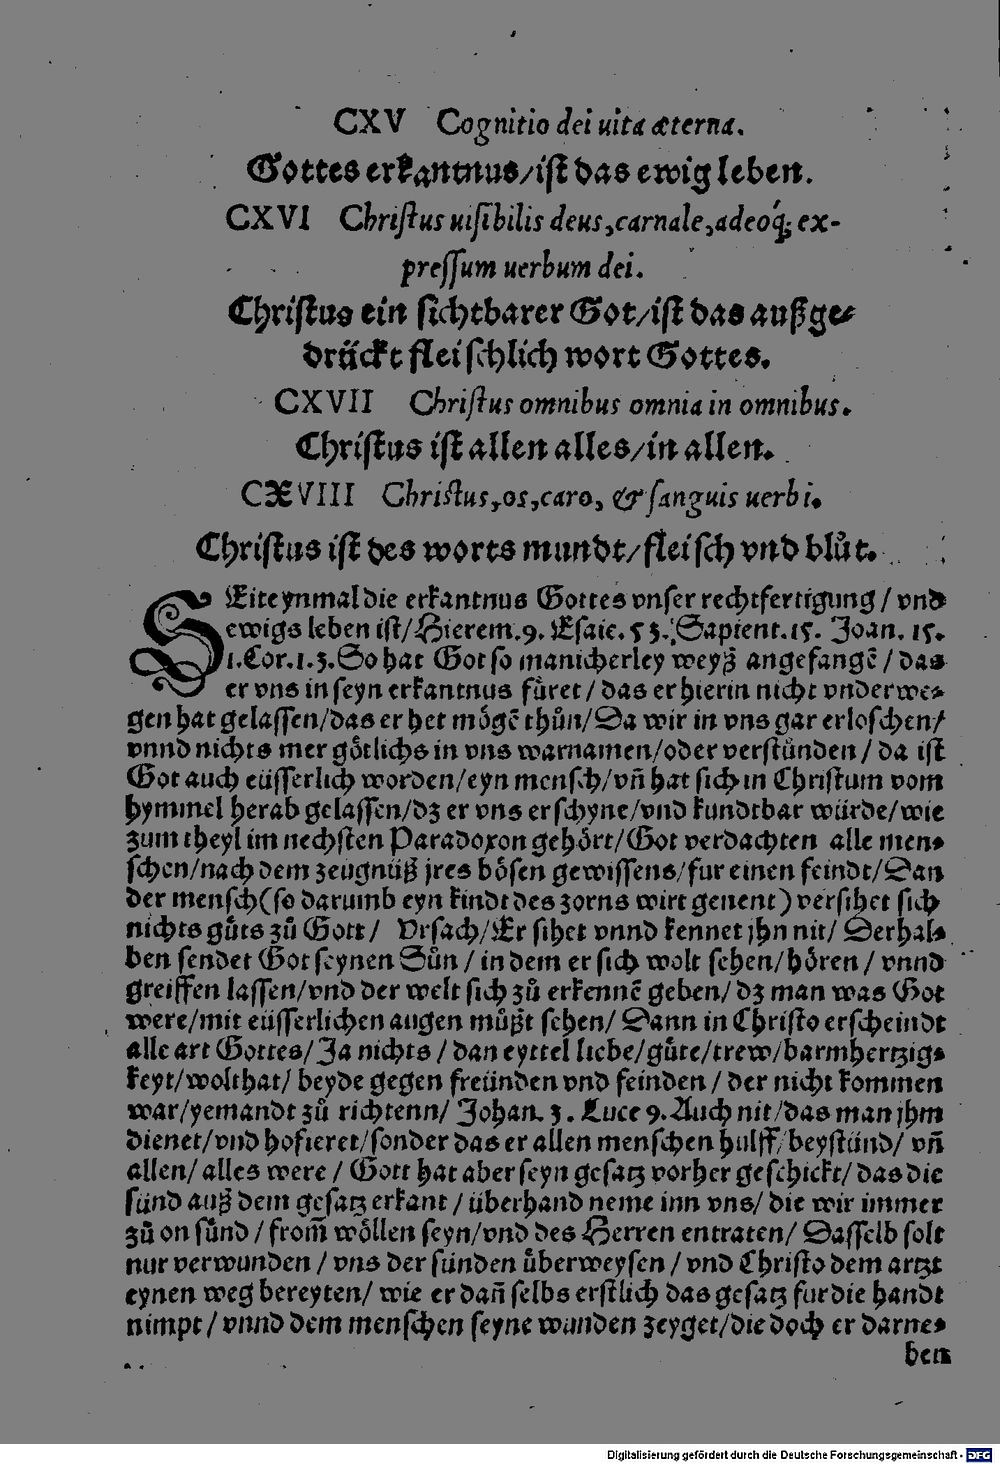 CXV Cognitio dei uita æterna.
Gottes erkantnus/ist das ewig leben.
CXVI Christus uisibilis deus, carnale, adeoq́; ex-
pressum uerbum dei.
Christus ein sichtbarer Got/ist das außge-
drückt fleischlich wort Gottes.
CXVII Christus omnibus omnia in omnibus.
Christus ist allen alles/in allen.
CXVIII Christus, os, caro, & sanguis uerbi.
Christus ist des worts mundt/fleisch vnd blůt.
SEiteynmal die erkantnus Gottes vnser rechtfertigung / vnd
ewigs leben ist/Hierem.9. Esaie.53. Sapient.15. Joan.15.
1.Cor.1.3. So hat Got so manicherley weyß angefangẽ / das
er vns in seyn erkantnus füret / das er hierin nicht vnderwe-
gen hat gelassen/das er het mögẽ thůn/Da wir in vns gar erloschen/
vnnd nichts mer götlichs in vns warnamen/oder verstůnden / da ist
Got auch eüsserlich worden/eyn mensch/vñ hat sich in Christum vom
hymmel herab gelassen/dz er vns erschyne/vnd kundtbar würde/wie
zum theyl im nechsten Paradoxon gehört/Got verdachten alle men-
schen/nach dem zeugnüß jres bösen gewissens/fur einen feindt/Dan
der mensch(so darumb eyn kindt des zorns wirt genent) versihet sich
nichts gůts zů Gott / Vrsach/Er sihet vnnd kennet jhn nit/ Derhal-
ben sendet Got seynen Sůn / in dem er sich wolt sehen/hören / vnnd
greiffen lassen/vnd der welt sich zů erkennẽ geben/ dz man was Got
were/mit eüsserlichen augen můßt sehen/ Dann in Christo erscheindt
alle art Gottes/Ja nichts / dan eyttel liebe/güte/trew/barmhertzig-
keyt/wolthat/ beyde gegen freünden vnd feinden / der nicht kommen
war/yemandt zů richtenn/ Johan. 3. Luce 9. Auch nit/das man jhm
dienet/vnd hofieret/sonder das er allen menschen hulff/beystünd/ vñ
allen/ alles were / Gott hat aber seyn gesatz vorher geschickt/ das die
sünd auß dem gesatz erkant / überhand neme inn vns/ die wir immer
zů on sünd / from̃ wöllen seyn/vnd des Herren entraten/ Dasselb solt
nur verwunden / vns der sünden überweysen / vnd Christo dem artzt
eynen weg bereyten/ wie er dañ selbs erstlich das gesatz fur die handt
nimpt / vnnd dem menschen seyne wunden zeyget/die doch er darne-
ben
Digitalisierung gefördert durch die Deutsche Forschungsgemeinschaft - DFG